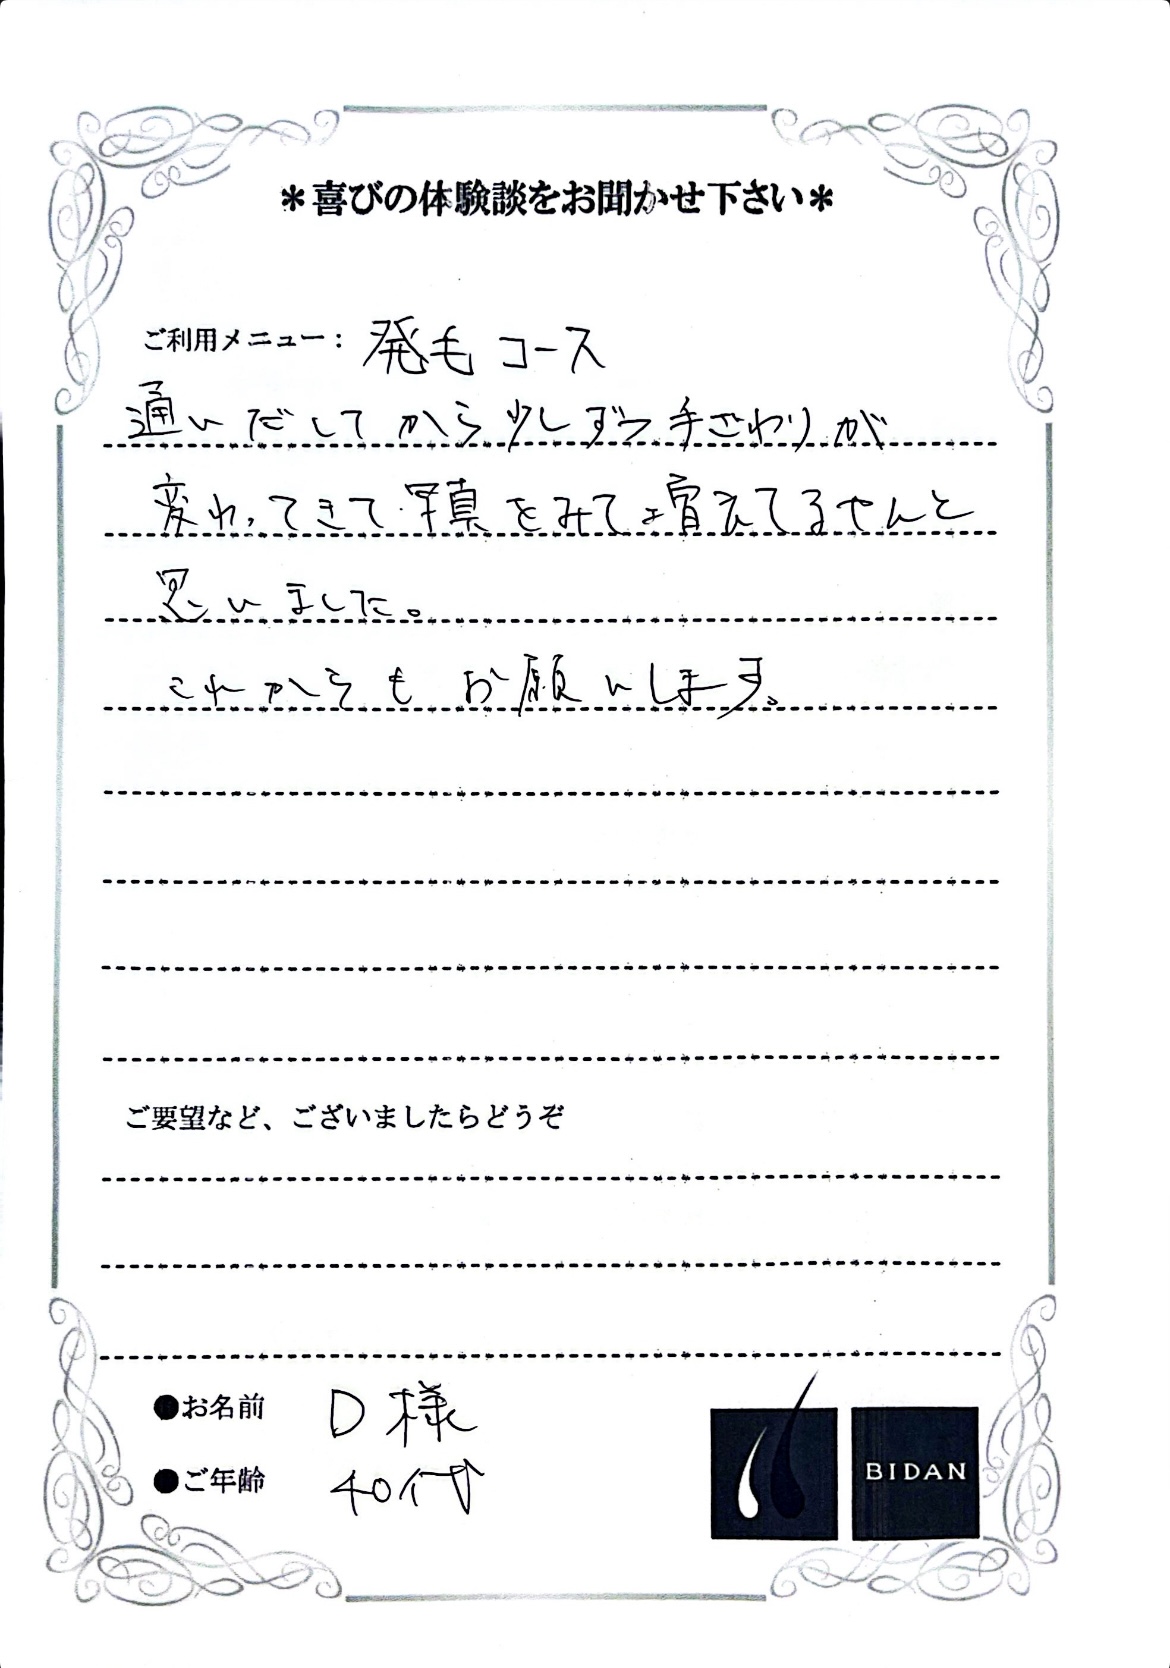 ＊喜びの体験談をお聞かせ下さい＊
ご利用メニュー：発毛コース
通いだしてから少しずつ手ざわりが
変わってきて写真をみても増えてるやんと
思いました。
これからもお願いします。
ご要望など、ございましたらどうぞ
●お名前 D様
●ご年齢 40代
BIDAN